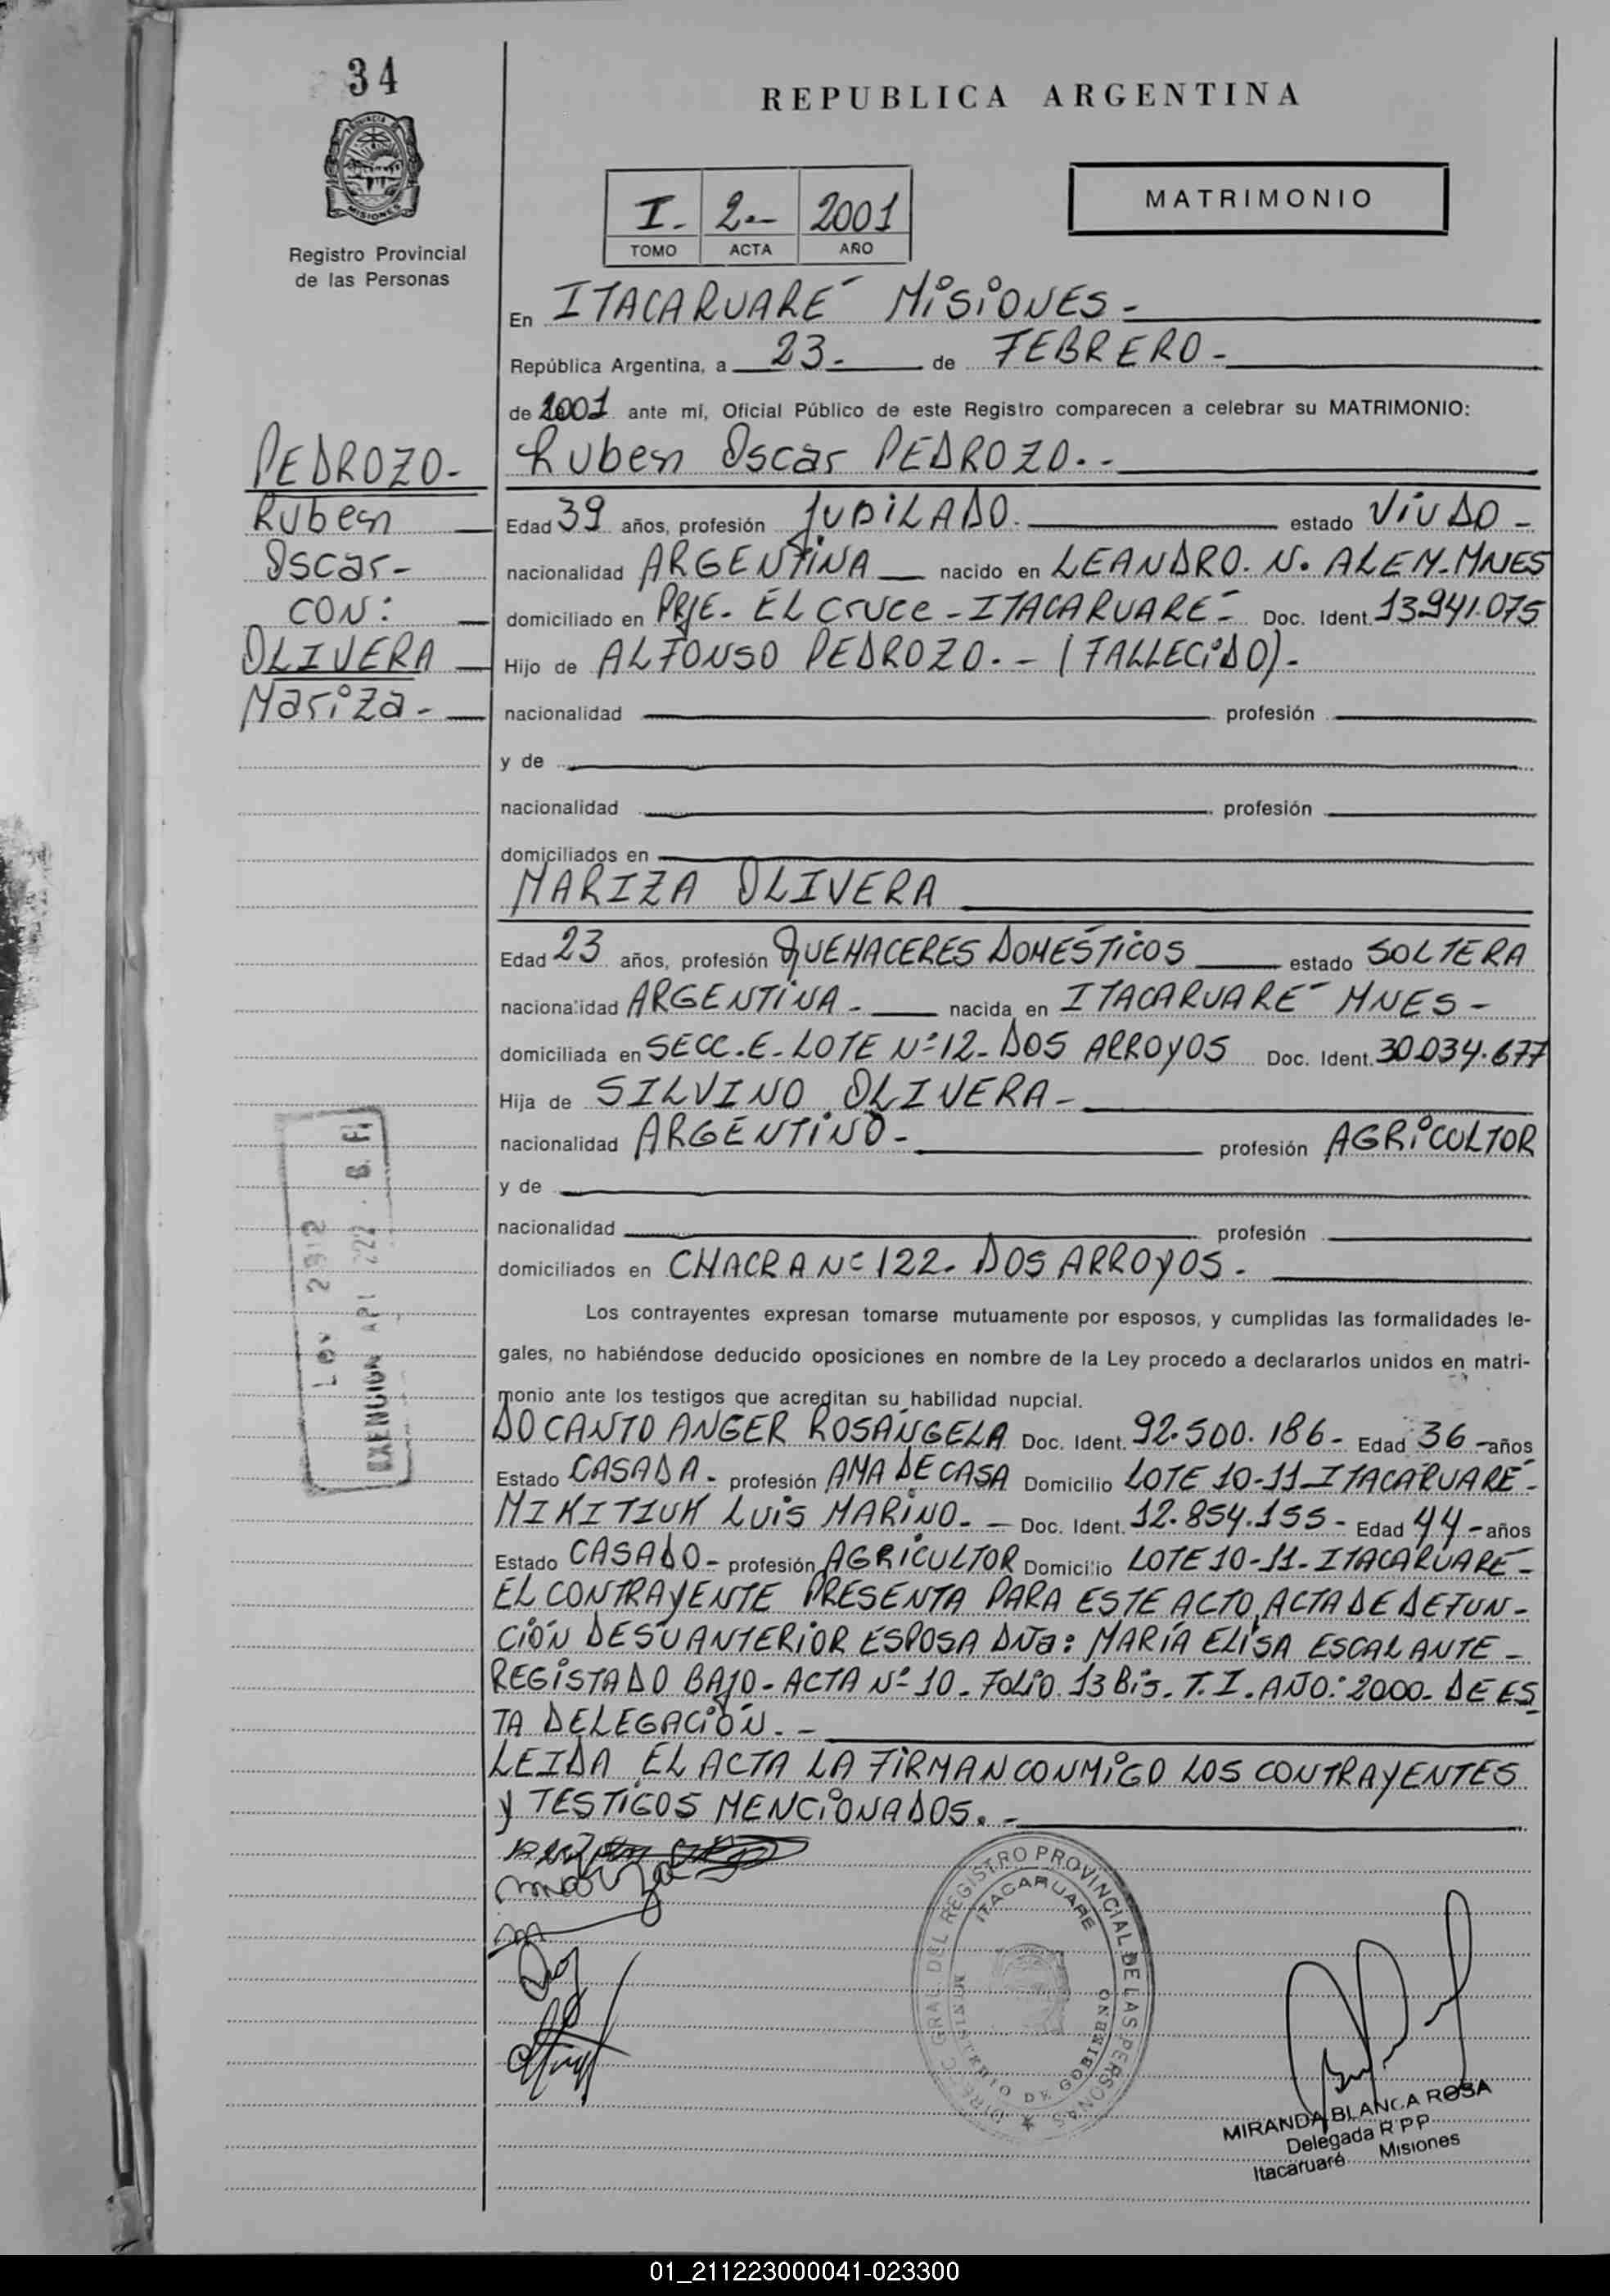 34
REPUBLICA ARGENTINA
PROVINCIA DE
MISIONES
Registro Provincial
de las Personas
I.- 2.- 2001
TOMO ACTA AÑO
MATRIMONIO
En ITACARUARÉ MISIONES -
República Argentina, a 23.- de FEBRERO -
de 2001 ante mí, Oficial Público de este Registro comparecen a celebrar su MATRIMONIO:
PEDROZO-
Ruben
Oscar-
CON:
OLIVERA
Mariza -
Ruben Oscar PEDROZO. -
Edad 39 años, profesión JUBILADO. estado VIUDO -
nacionalidad ARGENTINA nacido en LEANDRO. N. ALEM-MNES
domiciliado en PRJE- EL Cruce - ITACARUARÉ - Doc. Ident. 13941.075
Hijo de ALFONSO PEDROZO. - (FALLECIDO) -
nacionalidad profesión
y de
nacionalidad profesión
domiciliados en
MARIZA OLIVERA
Edad 23 años, profesión QUEHACERES DOMÉSTICOS estado SOLTERA
nacionalidad ARGENTINA - nacida en ITACARUARÉ MNES -
domiciliada en SECC.E- LOTE Nº12- DOS ARROYOS Doc. Ident. 30.034.677
Hija de SILVINO OLIVERA -
nacionalidad ARGENTINO - profesión AGRICULTOR
y de
nacionalidad profesión
domiciliados en CHACRA Nº 122. DOS ARROYOS -
Los contrayentes expresan tomarse mutuamente por esposos, y cumplidas las formalidades le-
gales, no habiéndose deducido oposiciones en nombre de la Ley procedo a declararlos unidos en matri-
monio ante los testigos que acreditan su habilidad nupcial.
DO CANTO ANGER ROSANGELA Doc. Ident. 92.500.186 - Edad 36 - años
Estado CASADA - profesión AMA DE CASA Domicilio LOTE 10-11-ITACARUARÉ -
MIKITIUK LUIS MARINO. - Doc. Ident. 12.854.155 - Edad 44 - años
Estado CASADO - profesión AGRICULTOR Domicilio LOTE 10-11- ITACARUARÉ -
EL CONTRAYENTE PRESENTA PARA ESTE ACTO, ACTA DE DEFUN-
CIÓN DE SU ANTERIOR ESPOSA DÑa: MARÍA ELISA ESCALANTE -
REGISTADO BAJO - ACTA Nº 10 - FOLIO 13 Bis. T. I. AÑO: 2000- DE ES
TA DELEGACIÓN. -
LEIDA EL ACTA LA FIRMAN CONMIGO LOS CONTRAYENTES
Y TESTIGOS MENCIONADOS. -
Ley 2912
EXENCION
DIREC GRAL DEL REGISTRO PROVINCIAL DE LAS PERSONAS
ITACARUARE
MINISTERIO DE GOBIERNO
MIRANDA BLANCA ROSA
Delegada R P P
Itacaruaré Misiones
01_211223000041-023300